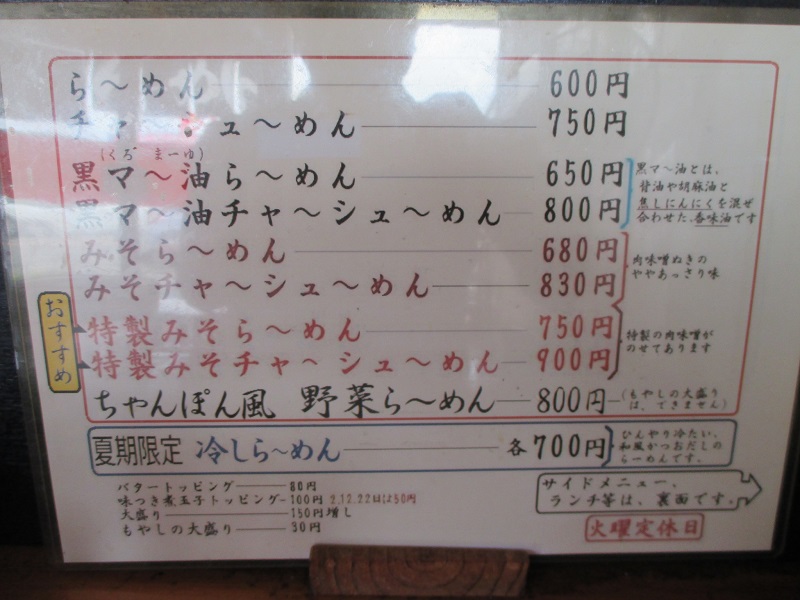 ら〜めん 600円
チャ〜シュ〜めん 750円
(くろ まーゆ)
黒マ〜油ら〜めん 650円
黒マ〜油チャ〜シュ〜めん 800円
黒マ〜油とは、
背油や胡麻油と
焦しにんにくを混ぜ
合わせた、香味油です
みそら〜めん 680円
みそチャ〜シュ〜めん 830円
肉味噌ぬきの
ややあっさり味
おすすめ
特製みそら〜めん 750円
特製みそチャ〜シュ〜めん 900円
特製の肉味噌が
のせてあります
ちゃんぽん風 野菜ら〜めん 800円
(もやしの大盛り
は、できません)
夏期限定 冷しら〜めん 各700円
ひんやり冷たい、
和風かつおだしの
らーめんです。
バタートッピング 80円
味つき煮玉子トッピング 100円 2,12,22日は50円
大盛り 150円増し
もやしの大盛り 30円
サイドメニュー、
ランチ等は、裏面です。
火曜定休日